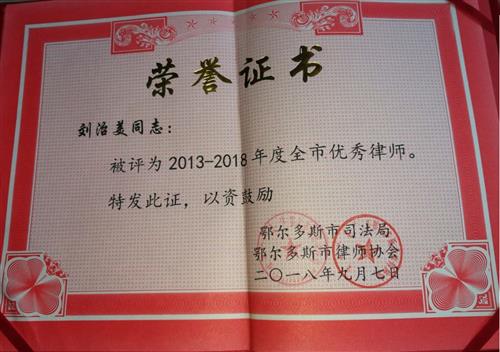 荣誉证书
刘治美同志：
被评为2013-2018年度全市优秀律师。
特发此证，以资鼓励
鄂尔多斯市司法局
鄂尔多斯市律师协会
二〇一八年九月七日